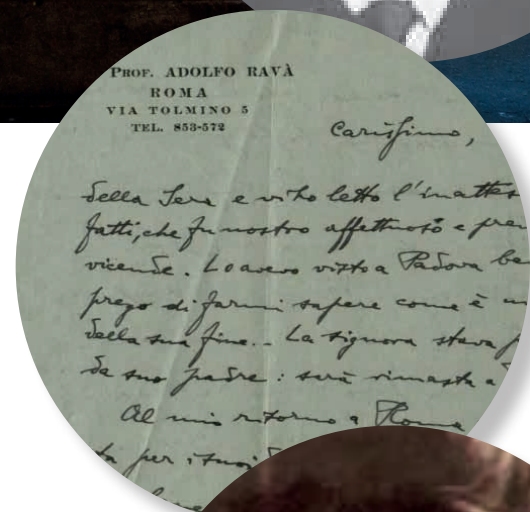 PROF. ADOLFO RAVÀ
ROMA
VIA TOLMINO 5
TEL. 853-572
Carissimo,
della Sera e vi ho letto l'inattes
fatti, che fu nostro affettuoso e pre
vicende. Lo avevo visto a Padova be
prego di farmi sapere come è
della sua fine.. La signora stava
da suo padre: sarà rimasta a
Al mio ritorno a Roma
per i tuoi